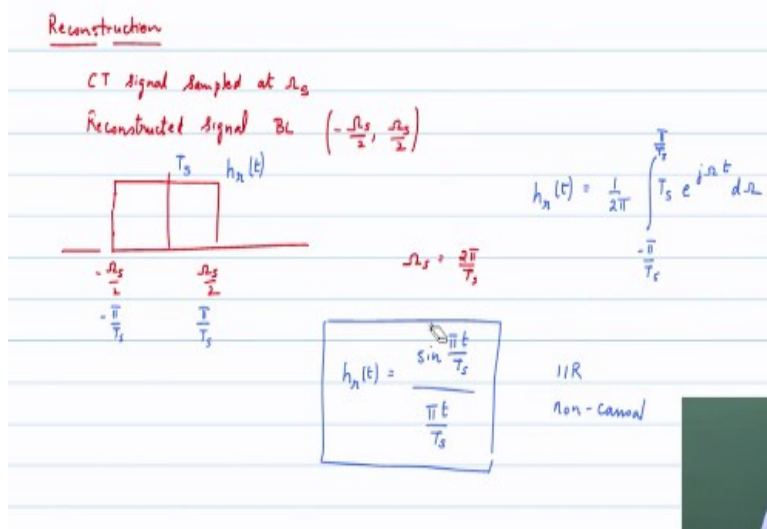 Reconstruction
CT signal sampled at Ωs
Reconstructed signal BL (-Ωs/2, Ωs/2)
Ts hr(t)
-Ωs/2 Ωs/2
-π/Ts π/Ts
hr(t) = 1/2π ∫_{-π/Ts}^{π/Ts} Ts e^{jΩt} dΩ
Ωs = 2π/Ts
hr(t) = sin πt/Ts / πt/Ts
IIR
non-causal